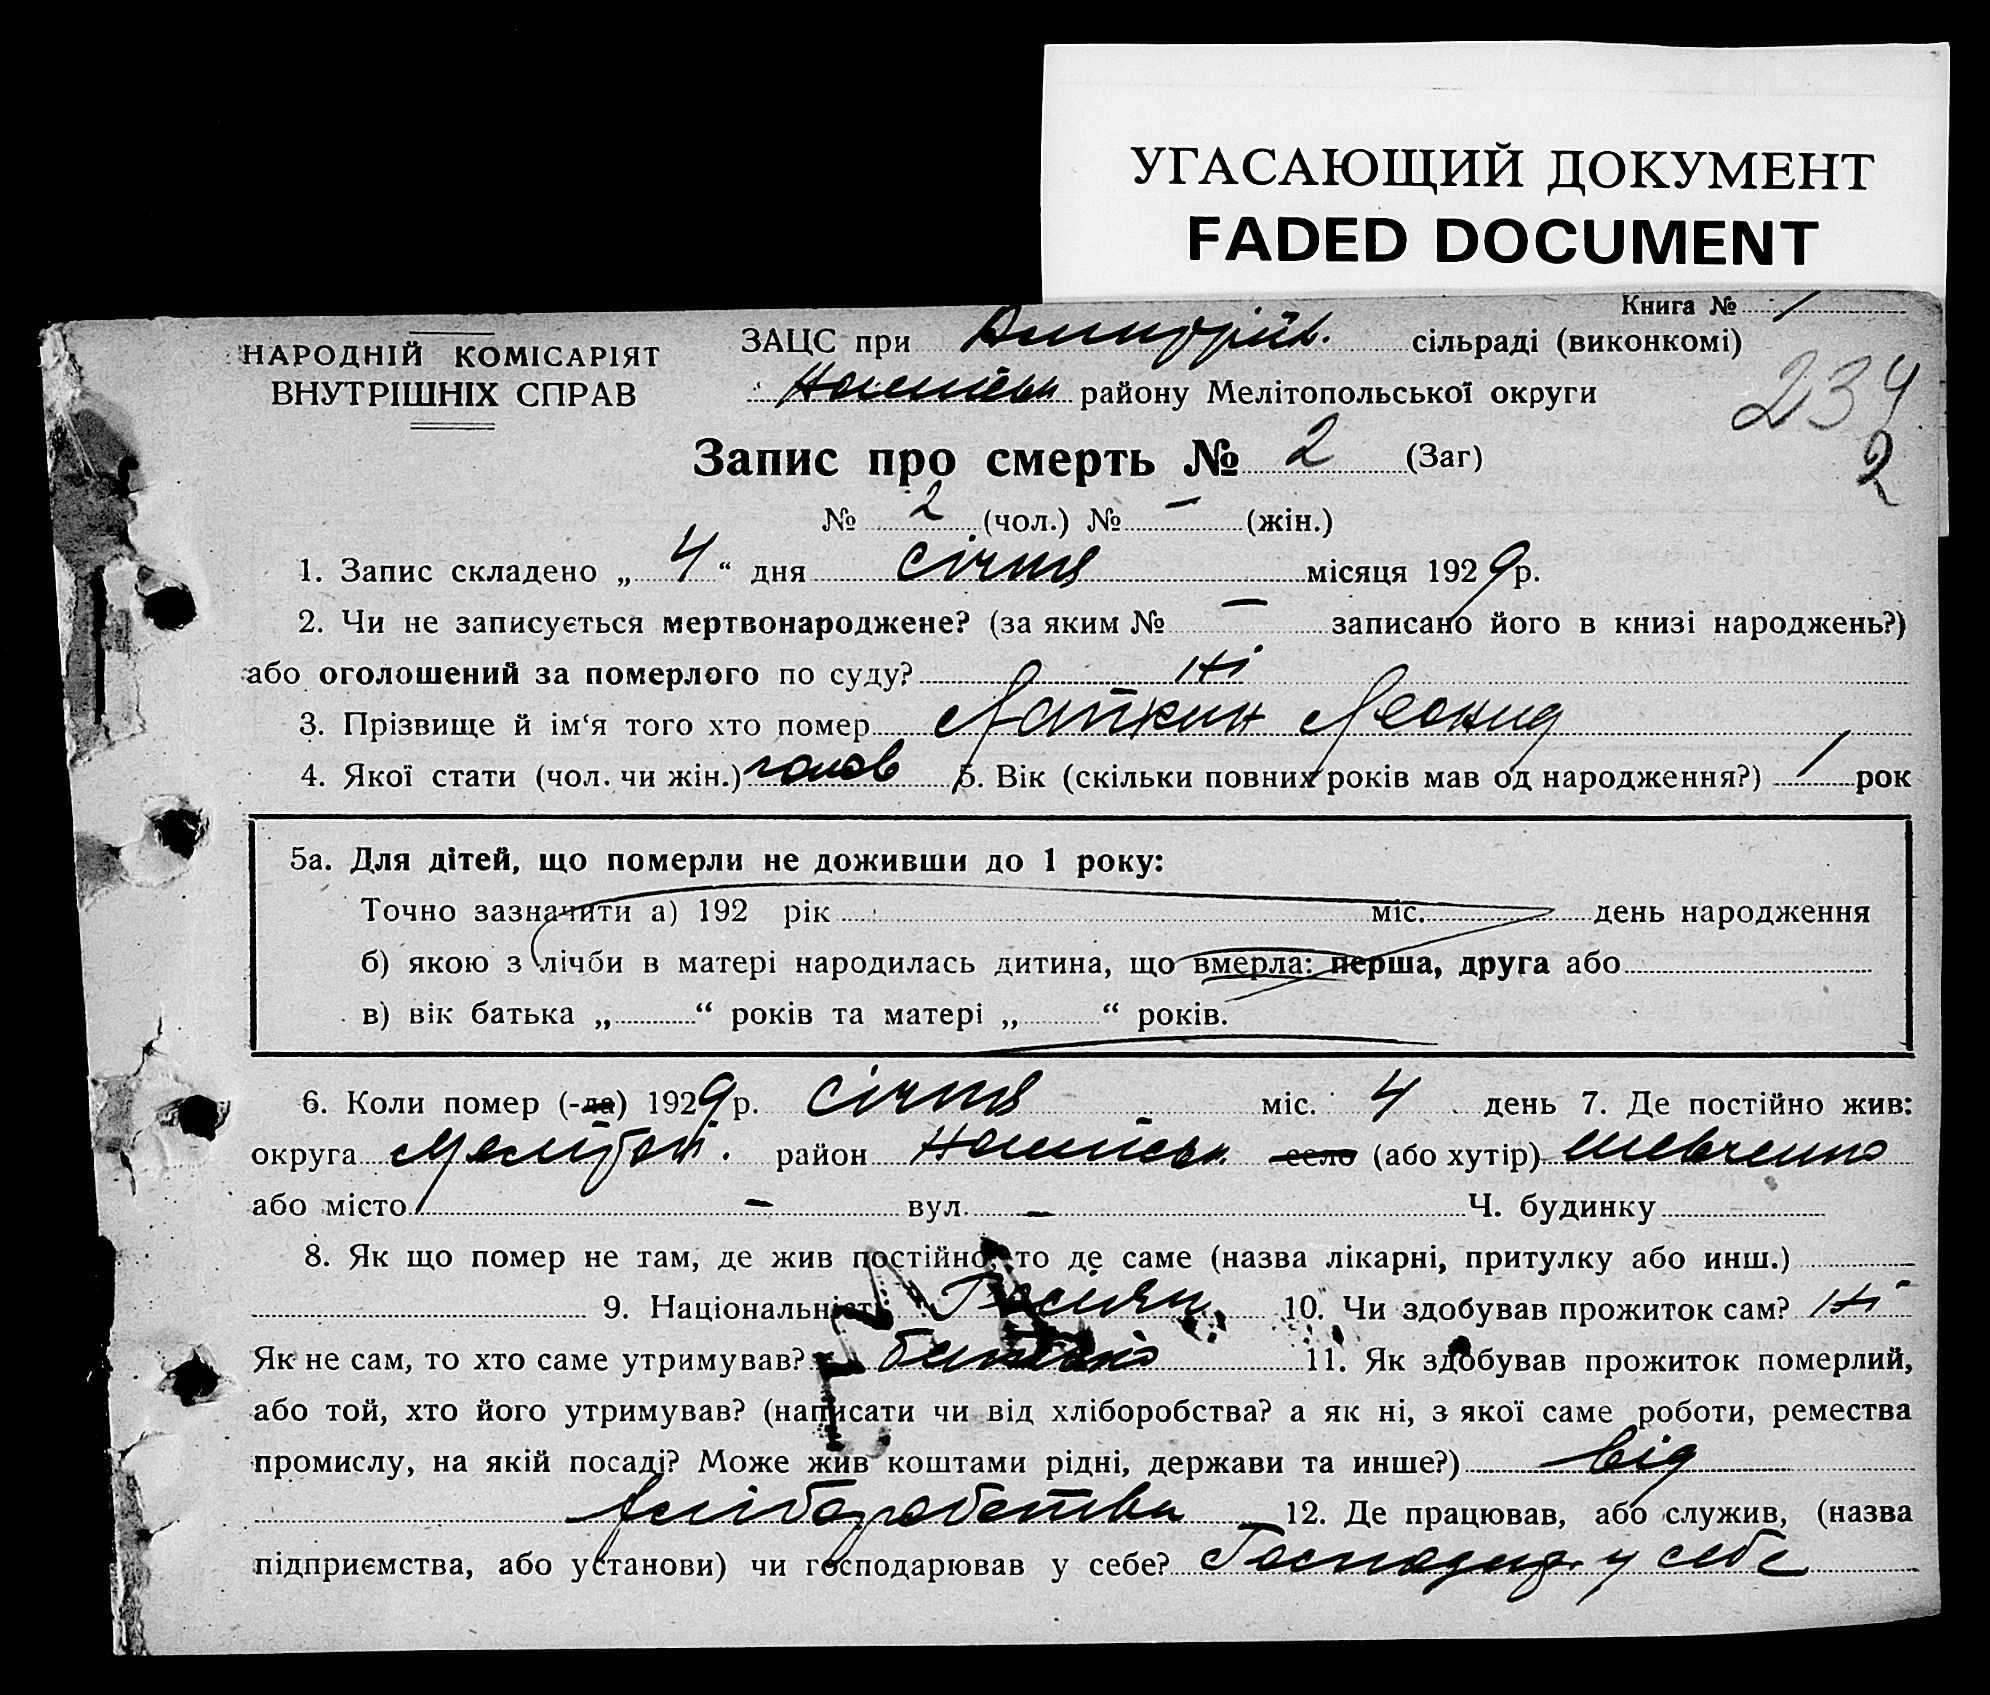 УГАСАЮЩИЙ ДОКУМЕНТ
FADED DOCUMENT
Книга № 1
НАРОДНІЙ КОМІСАРІЯТ
ВНУТРІШНІХ СПРАВ
ЗАЦС при сільраді (виконкомі)
району Мелітопольської округи
234
2
Запис про смерть № 2 (Заг)
№ 2 (чол.) № – (жін.)
1. Запис складено „ 4 “ дня січня місяця 1929 р.
2. Чи не записується мертвонароджене? (за яким № – записано його в книзі народжень?)
або оголошений за померлого по суду? Ні
3. Прізвище й ім‘я того хто помер Лапкин Леонид
4. Якої стати (чол. чи жін.) 5. Вік (скільки повних років мав од народження?) 1 рок
5а. Для дітей, що померли не доживши до 1 року:
Точно зазначити а) 192 рік міс. день народження
б) якою з лічби в матері народилась дитина, що вмерла: перша, друга або
в) вік батька „ “ років та матері „ “ років.
6. Коли помер (-ла) 1929 р. січня міс. 4 день 7. Де постійно жив:
округа район село (або хутір) Шевченко
або місто – вул. – Ч. будинку
8. Як що помер не там, де жив постійно, то де саме (назва лікарні, притулку або инш.)
9. Національність 10. Чи здобував прожиток сам? Ні
Як не сам, то хто саме утримував? батько 11. Як здобував прожиток померлий,
або той, хто його утримував? (написати чи від хліборобства? а як ні, з якої саме роботи, ремества
промислу, на якій посаді? Може жив коштами рідні, держави та инше?) від
хліборобства 12. Де працював, або служив, (назва
підприємства, або установи) чи господарював у себе? Господар. у себе